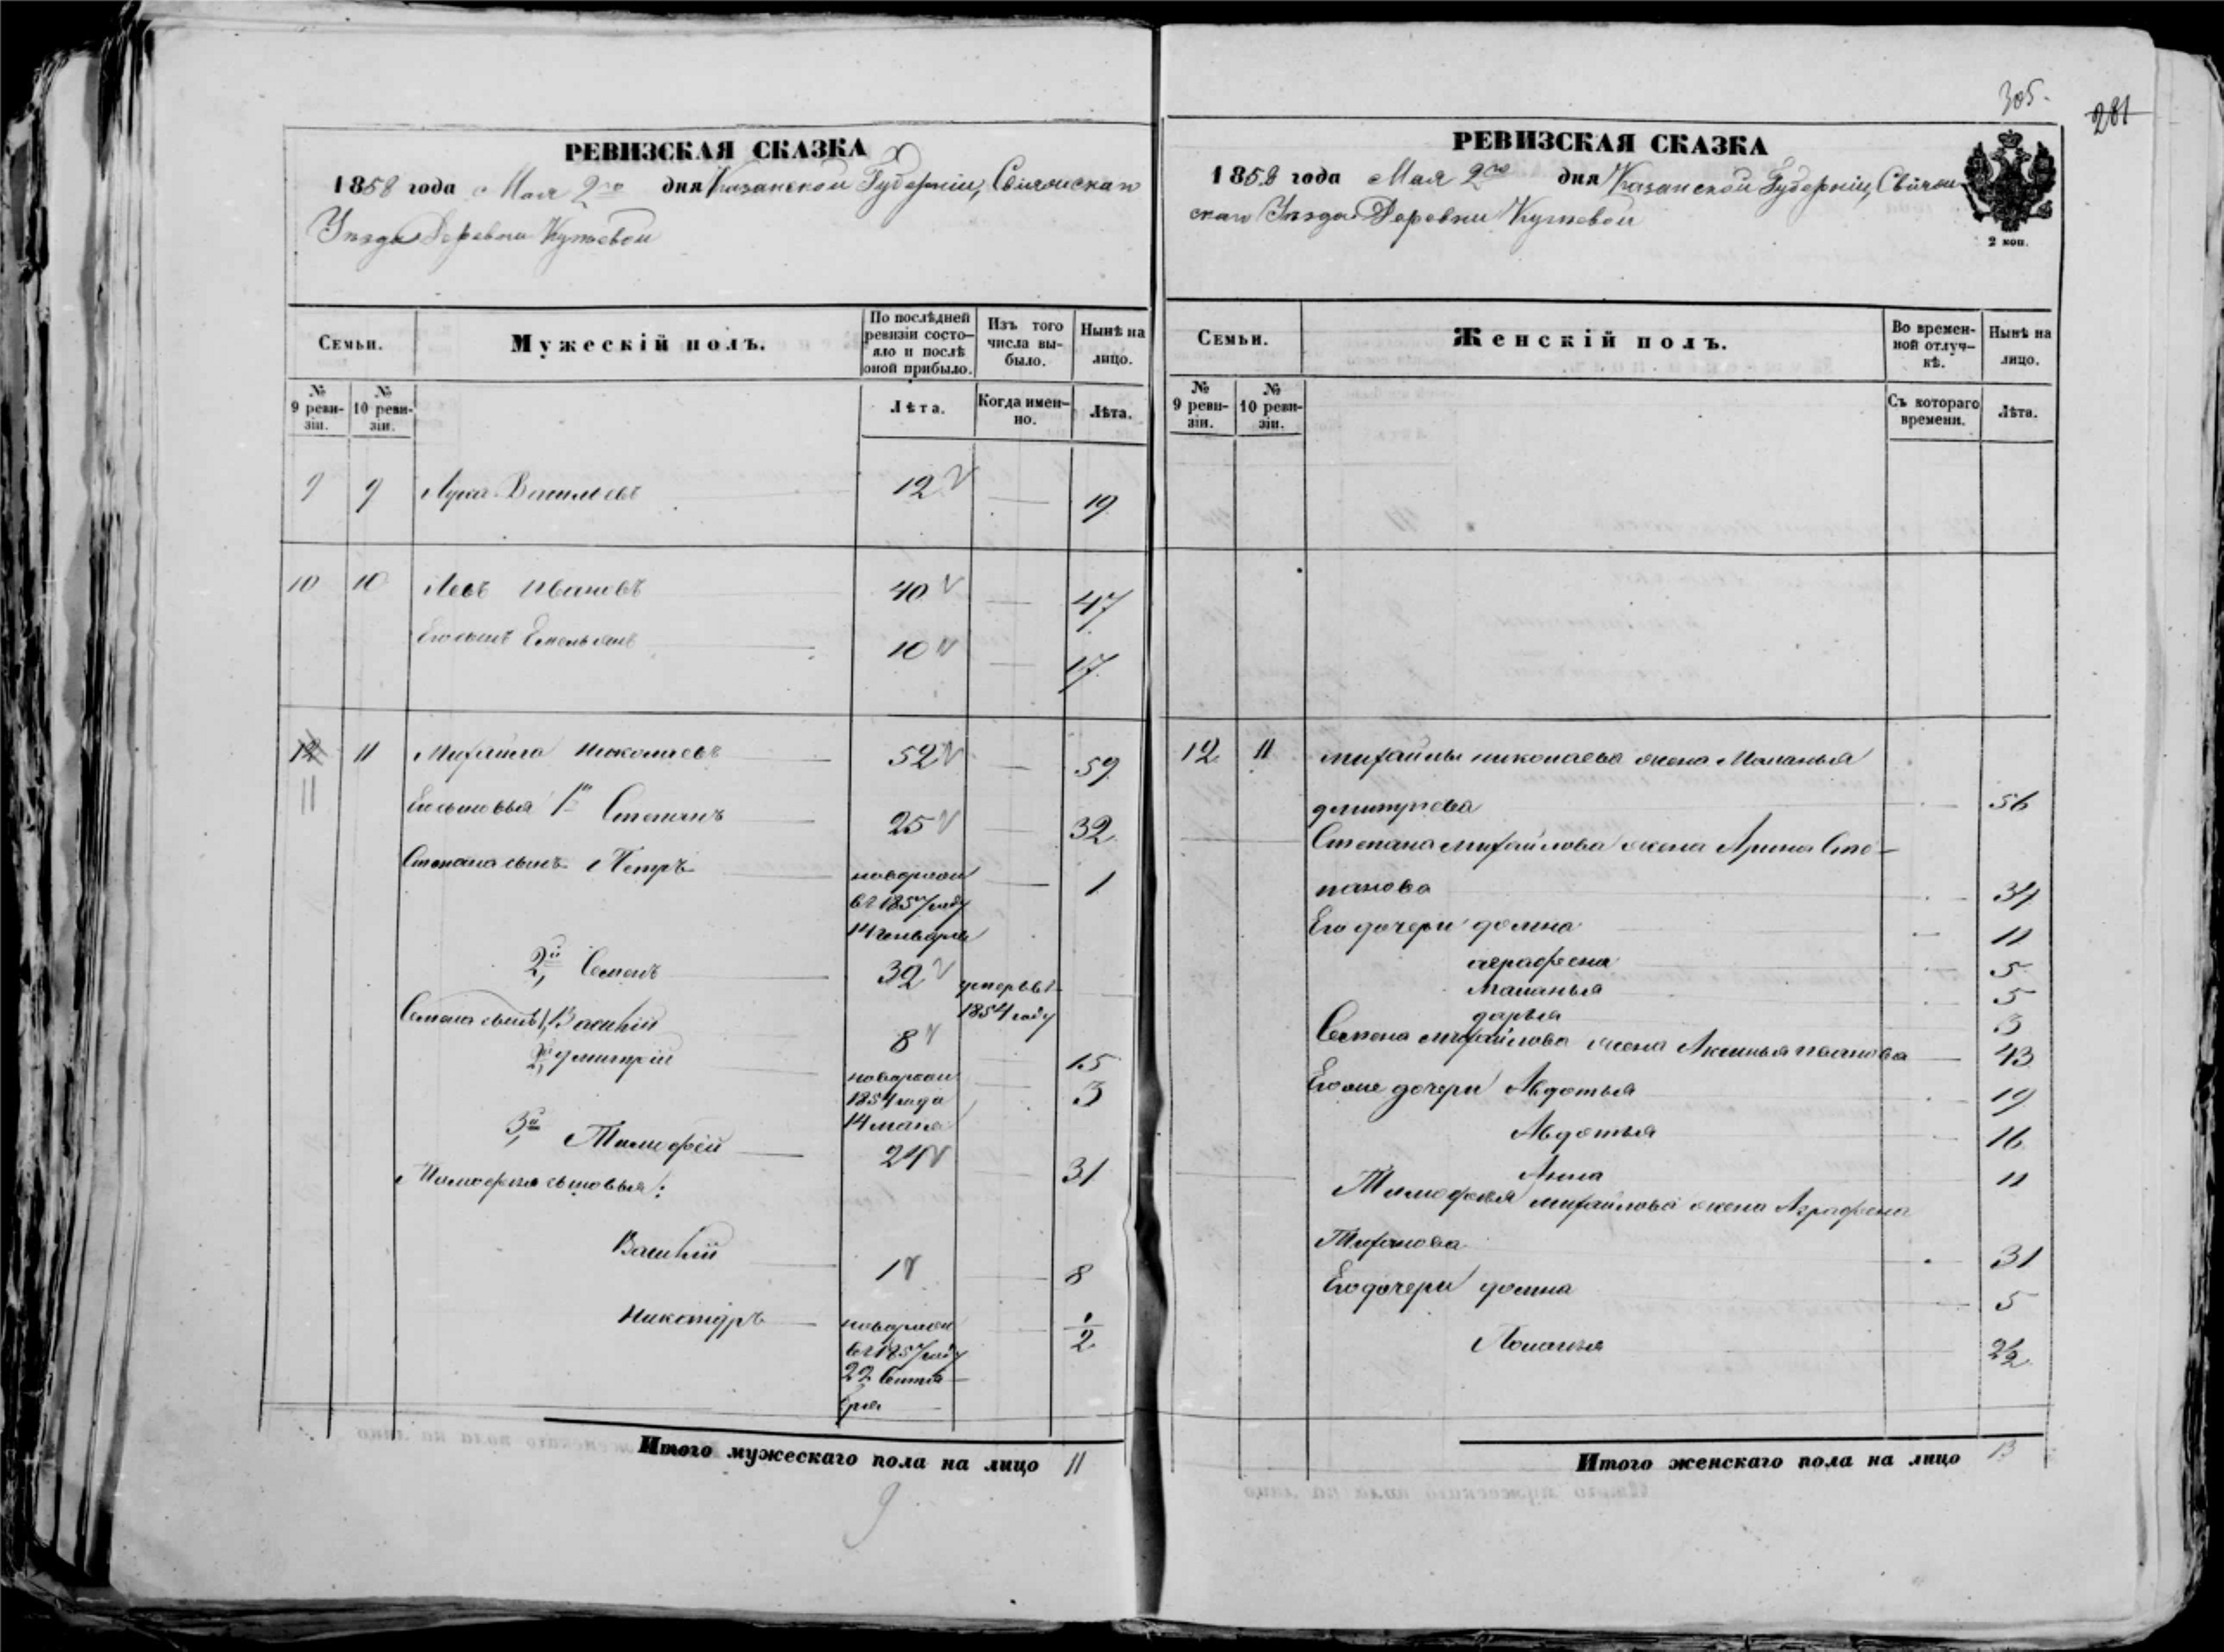 305.
281
РЕВИЗСКАЯ СКАЗКА
1858 года Мая 2го дня Казанской Губерніи, Свіяжскаго
Уѣзда Деревни
Семьи.
Мужескій полъ.
По послѣдней ревизіи состояло и послѣ оной прибыло.
Изъ того числа выбыло.
Нынѣ на лицо.
№ 9 ревизіи.
№ 10 ревизіи.
Лѣта.
Когда именно.
Лѣта.
9 9 Лука Васильевъ 12 — 19
10 10 Левъ Ивановъ 40 — 47
Его сынъ Емельянъ 10 — 17
12 11 Михайло Николаевъ 52 — 59
11
Его сыновья 1й Степанъ 25 — 32
Степана сынъ Петръ новорож — 1
въ 1857 году
14 Генваря
2й Семенъ 32 умеръ въ
1854 году
Семена сынъ 1, Василій 8 15
2й Дмитрій новорож 3
1854 года
14 мая
3й Тимофей 24 31
Тимофея сыновья:
Василій 1 — 8
Никандръ новорож — 1/2
въ 1857 году
22 Сентя-
бря
Итого мужескаго пола на лицо 11
9
РЕВИЗСКАЯ СКАЗКА
1858 года Мая 2го дня Казанской Губерніи, Свіяж-
скаго Уѣзда Деревни
2 коп.
Семьи.
Женскій полъ.
Во временной отлучкѣ.
Нынѣ на лицо.
№ 9 ревизіи.
№ 10 ревизіи.
Съ котораго времени.
Лѣта.
12 11 Михайлы Николаева жена Маланья
Дмитріева 56
Степана Михайлова жена Арина Сте-
панова 34
Его дочери Домна 11
Аграфена 5
Маланья 5
Дарья 3
Семена Михайлова жена Аксинья Иванова 43
Его же дочери Авдотья 19
Авдотья 16
Анна 11
Тимофея Михайлова жена Аграфена
31
Его дочери Домна 5
2 1/2
Итого женскаго пола на лицо 13